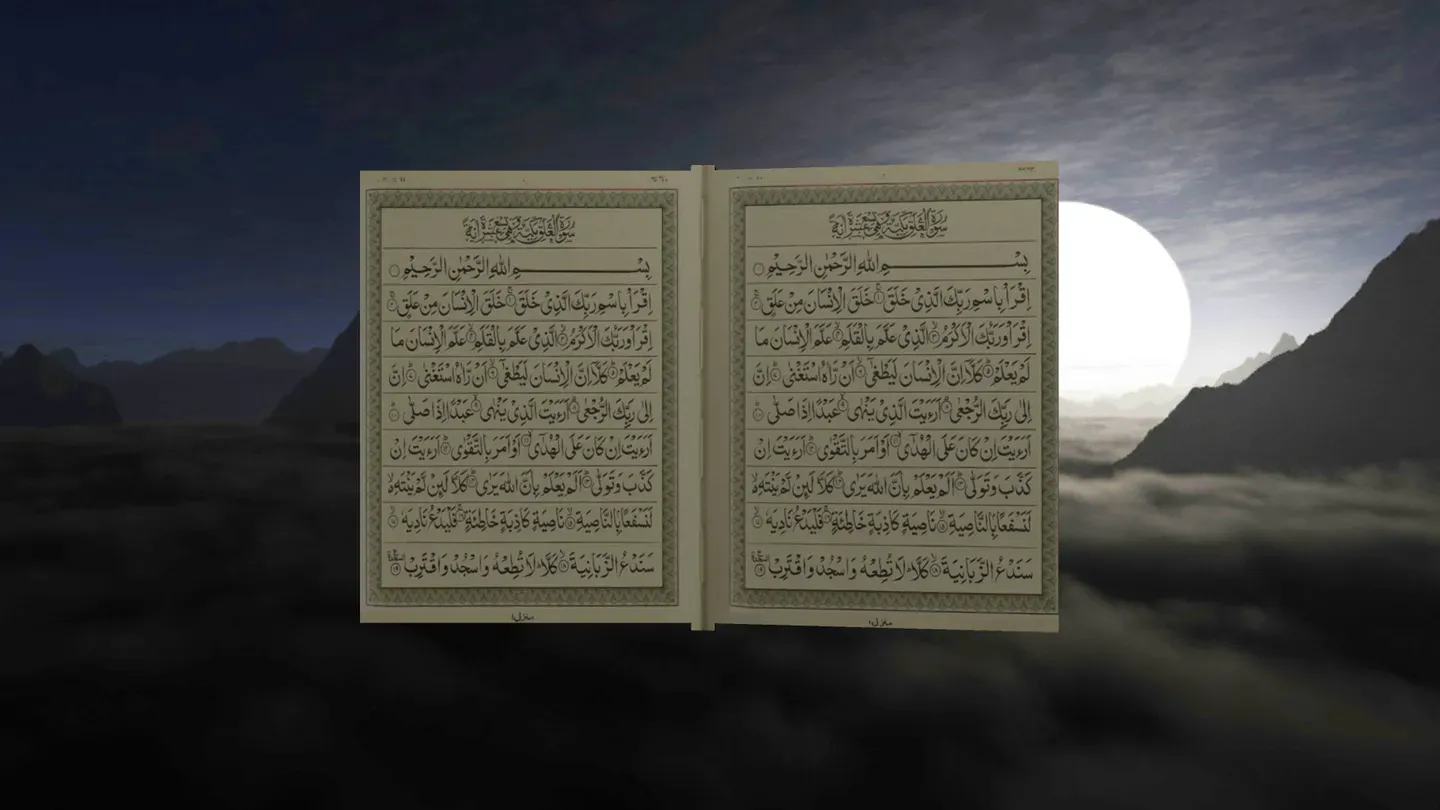 سُوْرَةُ الْعَلَقِ مَكِّيَّةٌ وَّهِيَ تِسْعَ عَشْرَةَ اٰيَةً
بِسْمِ اللّٰهِ الرَّحْمٰنِ الرَّحِيْمِ ۝
اِقْرَاْ بِاسْمِ رَبِّكَ الَّذِيْ خَلَقَ ۝ خَلَقَ الْاِنْسَانَ مِنْ عَلَقٍ ۝
اِقْرَاْ وَرَبُّكَ الْاَكْرَمُ ۝ الَّذِيْ عَلَّمَ بِالْقَلَمِ ۝ عَلَّمَ الْاِنْسَانَ مَا
لَمْ يَعْلَمْ ۝ كَلَّاۤ اِنَّ الْاِنْسَانَ لَيَطْغٰۤى ۝ اَنْ رَّاٰهُ اسْتَغْنٰى ۝ اِنَّ
اِلٰى رَبِّكَ الرُّجْعٰى ۝ اَرَءَيْتَ الَّذِيْ يَنْهٰى ۝ عَبْدًا اِذَا صَلّٰى ۝
اَرَءَيْتَ اِنْ كَانَ عَلَى الْهُدٰۤى ۝ اَوْ اَمَرَ بِالتَّقْوٰى ۝ اَرَءَيْتَ اِنْ
كَذَّبَ وَتَوَلّٰى ۝ اَلَمْ يَعْلَمْ بِاَنَّ اللّٰهَ يَرٰى ۝ كَلَّا لَئِنْ لَّمْ يَنْتَهِ
لَنَسْفَعًا بِالنَّاصِيَةِ ۝ نَاصِيَةٍ كَاذِبَةٍ خَاطِئَةٍ ۝ فَلْيَدْعُ نَادِيَهٗ ۝
سَنَدْعُ الزَّبَانِيَةَ ۝ كَلَّا لَا تُطِعْهُ وَاسْجُدْ وَاقْتَرِبْ ۝
منزل
سُوْرَةُ الْعَلَقِ مَكِّيَّةٌ وَّهِيَ تِسْعَ عَشْرَةَ اٰيَةً
بِسْمِ اللّٰهِ الرَّحْمٰنِ الرَّحِيْمِ ۝
اِقْرَاْ بِاسْمِ رَبِّكَ الَّذِيْ خَلَقَ ۝ خَلَقَ الْاِنْسَانَ مِنْ عَلَقٍ ۝
اِقْرَاْ وَرَبُّكَ الْاَكْرَمُ ۝ الَّذِيْ عَلَّمَ بِالْقَلَمِ ۝ عَلَّمَ الْاِنْسَانَ مَا
لَمْ يَعْلَمْ ۝ كَلَّاۤ اِنَّ الْاِنْسَانَ لَيَطْغٰۤى ۝ اَنْ رَّاٰهُ اسْتَغْنٰى ۝ اِنَّ
اِلٰى رَبِّكَ الرُّجْعٰى ۝ اَرَءَيْتَ الَّذِيْ يَنْهٰى ۝ عَبْدًا اِذَا صَلّٰى ۝
اَرَءَيْتَ اِنْ كَانَ عَلَى الْهُدٰۤى ۝ اَوْ اَمَرَ بِالتَّقْوٰى ۝ اَرَءَيْتَ اِنْ
كَذَّبَ وَتَوَلّٰى ۝ اَلَمْ يَعْلَمْ بِاَنَّ اللّٰهَ يَرٰى ۝ كَلَّا لَئِنْ لَّمْ يَنْتَهِ
لَنَسْفَعًا بِالنَّاصِيَةِ ۝ نَاصِيَةٍ كَاذِبَةٍ خَاطِئَةٍ ۝ فَلْيَدْعُ نَادِيَهٗ ۝
سَنَدْعُ الزَّبَانِيَةَ ۝ كَلَّا لَا تُطِعْهُ وَاسْجُدْ وَاقْتَرِبْ ۝
منزل